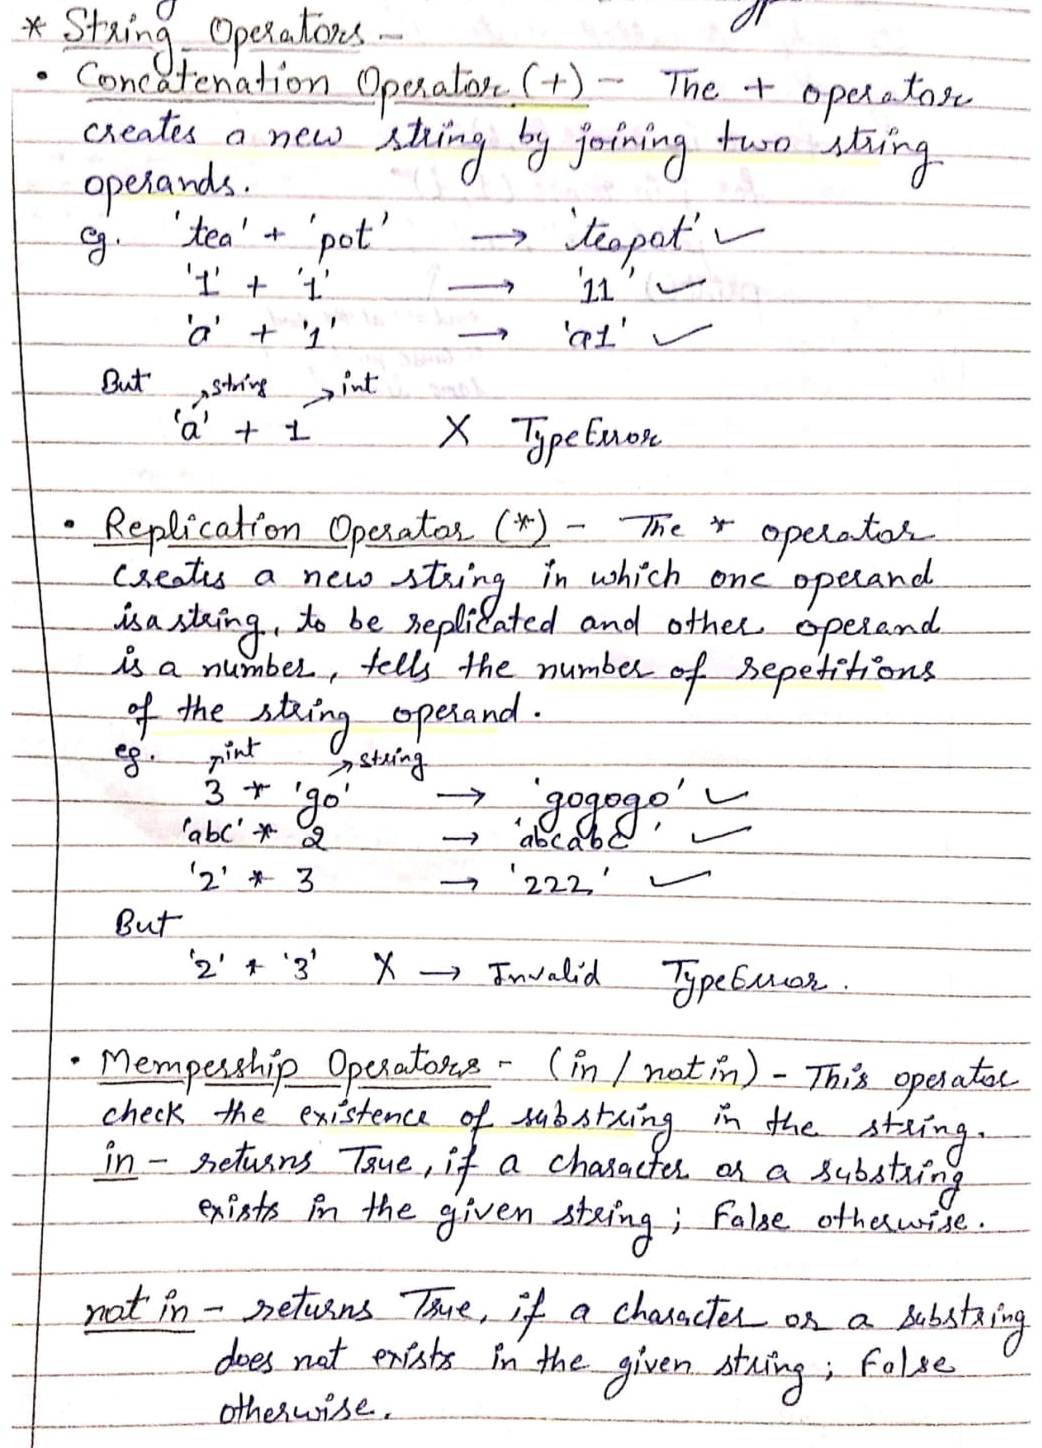 * String Operators -
• Concatenation Operator (+) - The + operator
creates a new string by joining two string
operands.
eg. 'tea' + 'pot' → 'teapot' ✓
'1' + '1' → '11' ✓
'a' + '1' → 'a1' ✓
But string int
'a' + 1 X TypeError
• Replication Operator (*) - The * operator
creates a new string in which one operand
is a string, to be replicated and other operand
is a number, tells the number of repetitions
of the string operand.
eg. int string
3 * 'go' → 'gogogo' ✓
'abc' * 2 → 'abcabc' ✓
'2' * 3 → '222' ✓
But
'2' * '3' X → Invalid TypeError.
• Mempership Operators - (in / not in) - This operator
check the existence of substring in the string.
in - returns True, if a character or a substring
exists in the given string; False otherwise.
not in - returns True, if a character or a substring
does not exists in the given string; False
otherwise.